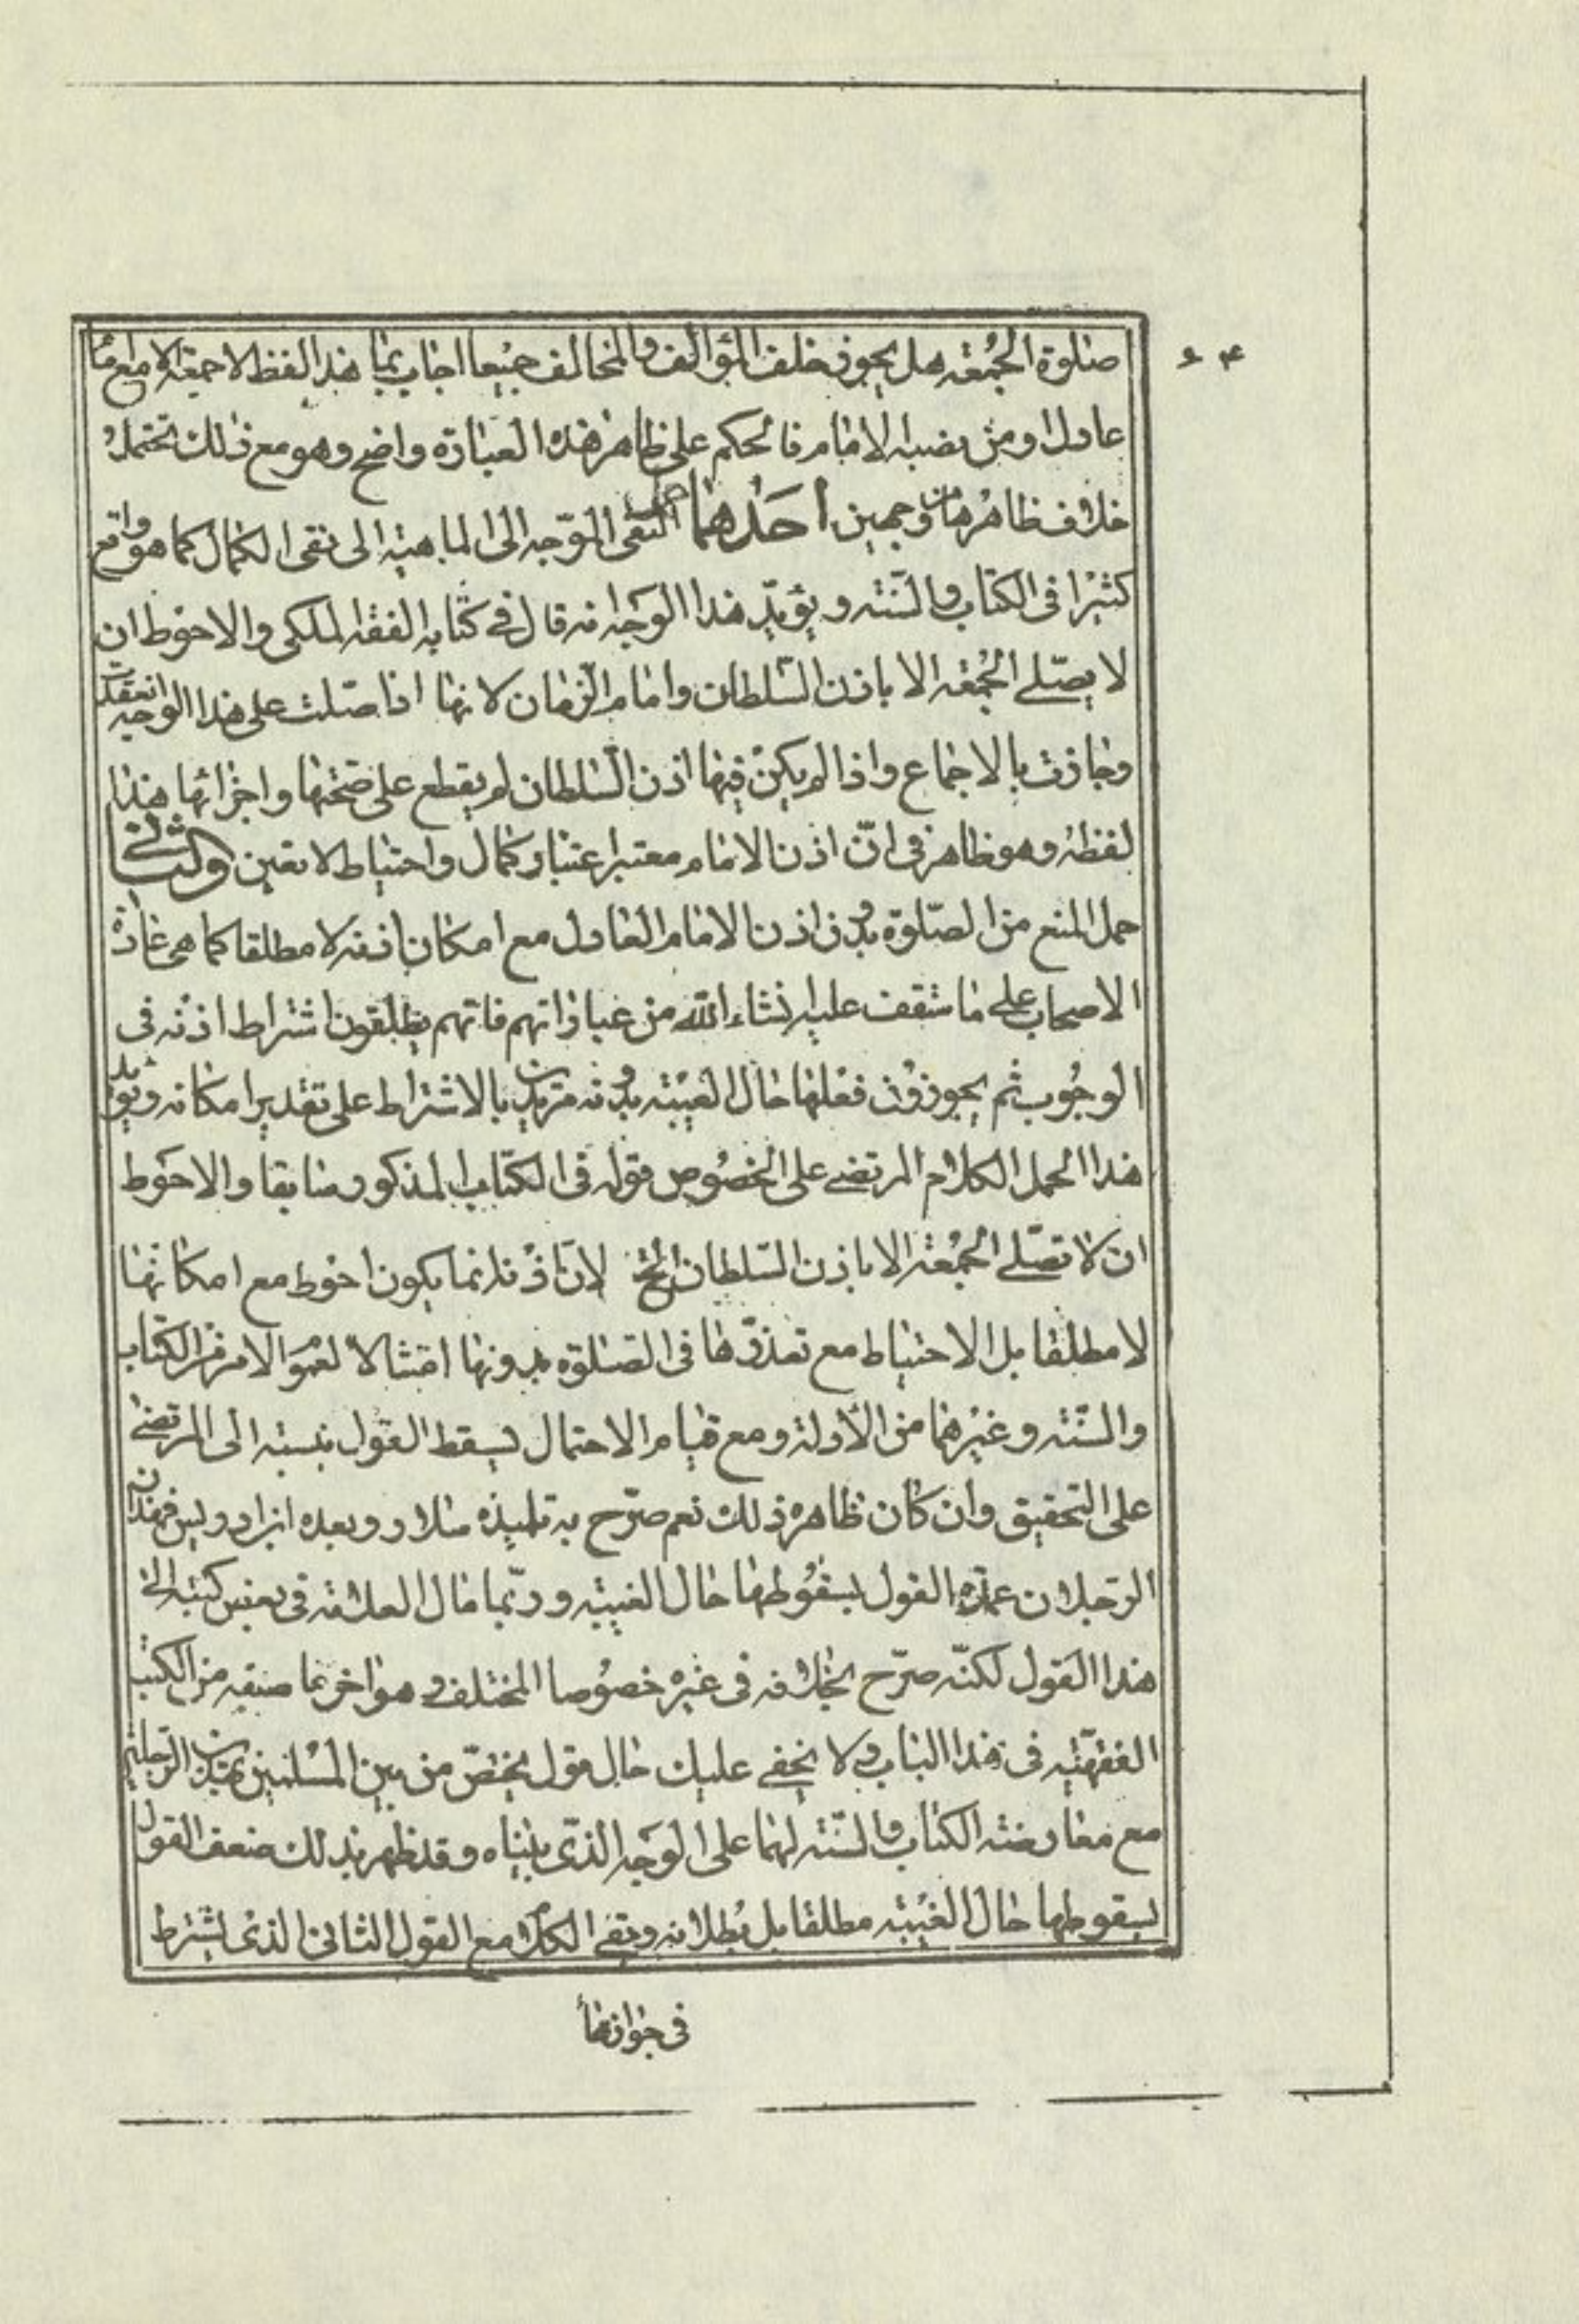 ۶۴
صلوة الجمعة هل يجوز خلف المؤالف والمخالف جميعا اجاب بما هذا لفظه لا جمعة الا مع امام
عادل او من نصبه الامام فالحكم على ظاهر هذه العبارة واضح وهو مع ذلك يحتمل
خلاف ظاهرها من وجهين احدهما حمل النفى الموّجه الى الماهية الى نفى الكمال كما هو واقع
كثيرا فى الكتاب والسّنة و يؤيّد هذا الوجه انه قال فى كتابه الفقه الملكى والاحوط ان
لا يصلّى الجمعة الا باذن السّلطان وامام الزّمان لانها اذا صلّت على هذا الوجه انعقدت
وجازت بالاجماع واذا لم يكن فيها اذن السّلطان لم يقطع على صحّتها واجزائها هذا
لفظه وهو ظاهر فى انّ اذن الامام معتبر اعتبار كمال واحتياط لا تعين والثانى
حمل المنع من الصّلوة بدون اذن الامام العادل مع امكان اذنه لا مطلقا كما هى عادة
الاصحاب على ما ستقف عليه انشاء الله من عباراتهم فانهم يطلقون اشتراط اذنه فى
الوجوب ثم يجوزون فعلها حال الغيبة بدونه مريدين بالاشتراط على تقدير امكانه ويؤيد
هذا الحمل لكلام المرتضى على الخصوص قوله فى الكتاب المذكور سابقا والاحوط
ان لا تصلّى الجمعة الا باذن السّلطان الخ لانّ اذنه انما يكون احوط مع امكانها
لا مطلقا بل الاحتياط مع تعذّرها فى الصلوة بدونها امتثالا لعموم الامر من الكتاب
والسّنة وغيرهما من الأدلة ومع قيام الاحتمال يسقط القول بنسبته الى المرتضى
على التحقيق وان كان ظاهره ذلك نعم صرّح به تلميذه سلار وبعده ابن ادريس فهذان
الرّجلان عمدة القول بسقوطها حال الغيبة وربّما مال العلامة فى بعض كتبه الى
هذا القول لكنّه صرّح بخلافه فى غيره خصوصا المختلف وهو اخر ما صنفه من الكتب
الفقهيّة فى هذا الباب ولا يخفى عليك حال قول يختصّ من بين المسلمين بهذين الرّجلين
مع معارضة الكتاب والسّنة لهما على الوجه الذّى بيّناه وقد ظهر بذلك ضعف القول
بسقوطها حال الغيبة مطلقا بل بطلانه وبقى الكلام مع القول الثانى الذى يشترط
فى جوازها